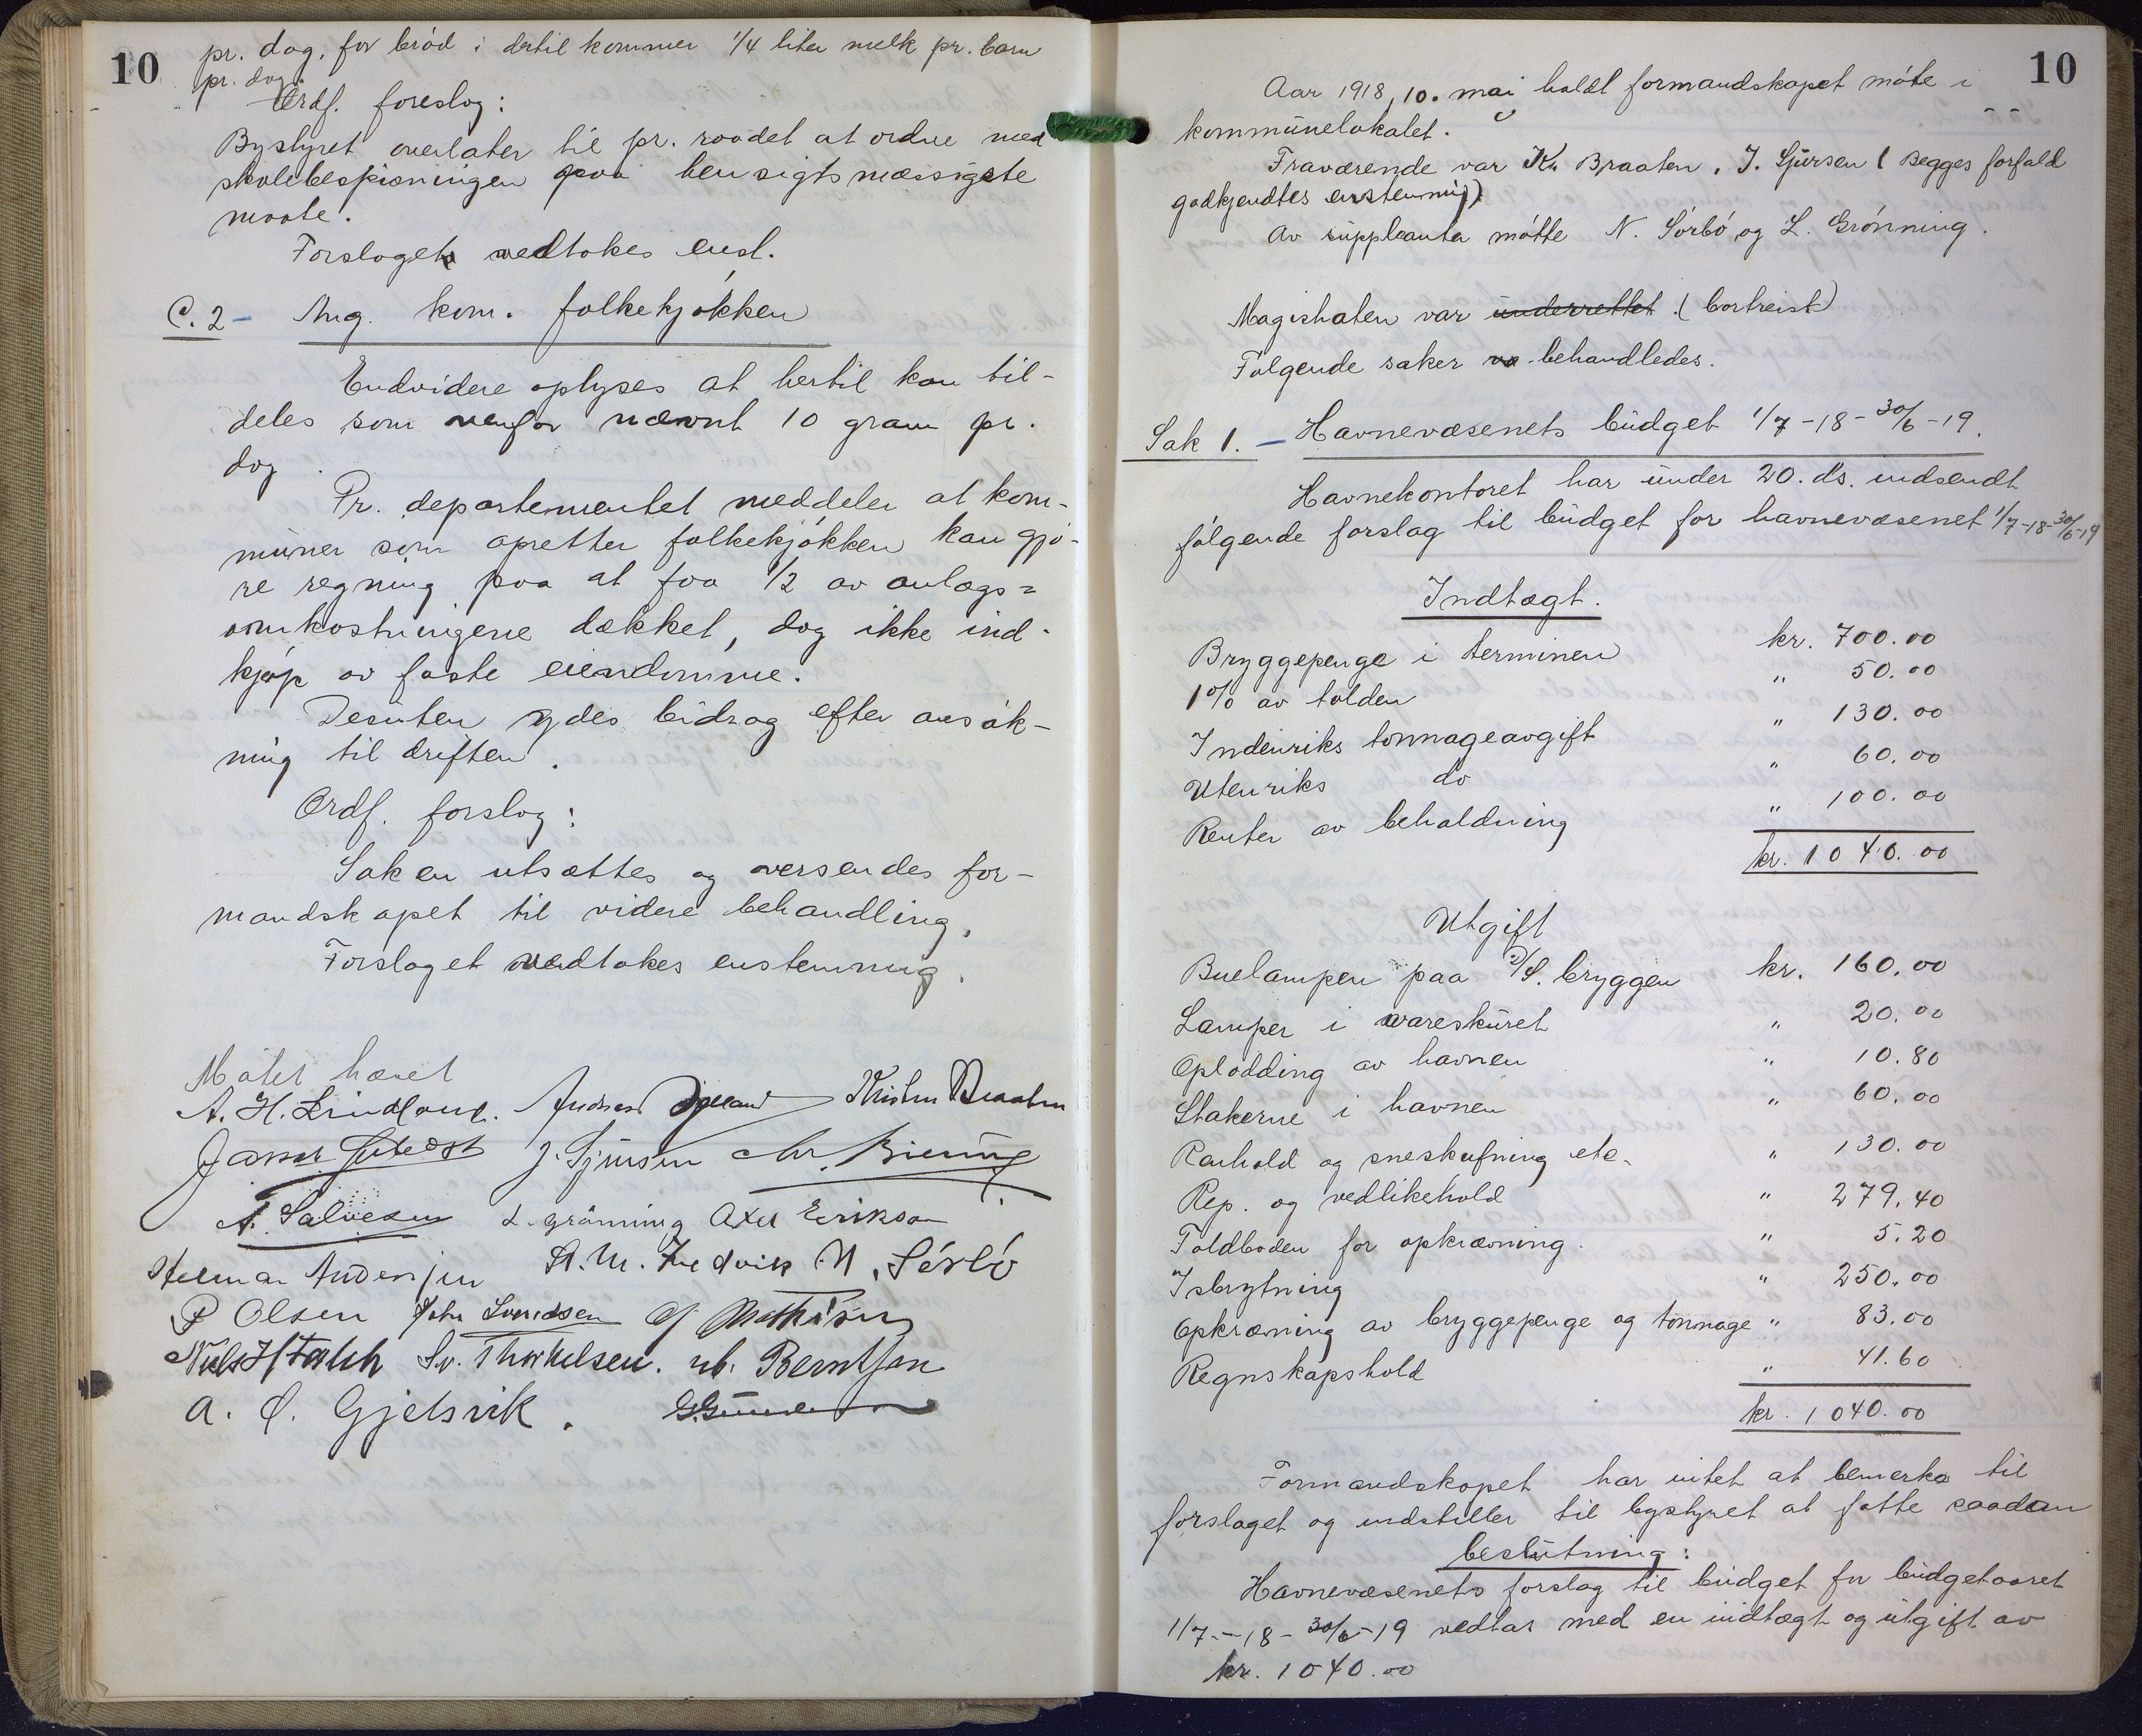 10
pr. dag, for brød; dertil kommer 1/4 liter melk pr. barn
pr. dag.
Ordf. foreslog:
Bystyret overlater til pr. raadet at ordne med
skolebespisningen paa hensigtsmæssigste
maate.
Forslaget vedtokes enst.
C. 2 - Ang. kom. folkekjøkken
Endvidere oplyses at hertil kan til-
deles som nævnt 10 gram pr.
dag.
Pr. departementet meddeler at kom-
muner som opretter folkekjøkken kan gjø-
re regning paa at faa 1/2 av anlægs-
omkostningene dækket, dog ikke ind-
kjøp av faste eiendomme.
Desuten ydes bidrag efter ansøk-
ning til driften.
Ordf. forslog:
Saken utsættes og oversendes for-
mandskapet til videre behandling.
Forslaget vedtokes enstemmig.
Møtet hævet
A. H. Lindland. Andreas Kristen Braaten
J. Sjursen Chr.
A. Salvesen L. Grønning Axel Erikson
Herman Andersen N. Sörbö
P Olsen John Svendsen Mathisen
Sv. Thorkelsen. Berntsen
A. O. Gjelsvik.
10
Aar 1918, 10. mai holdt formandskapet møte i
kommunelokalet.
Fraværende var Kr. Braaten, J. Sjursen (Begges forfald
godkjendtes enstemmig)
Av suppleanter møtte N. Sörbö og L. Grønning.
Magistraten var underrettet. (bortreist)
Følgende saker va behandledes.
Sak 1. - Havnevæsenets budget 1/7-18-30/6-19.
Havnekontoret har under 20. ds. indsendt
følgende forslag til budget for havnevæsenet 1/7-18-30/6-19
Indtægt.
Bryggepenge i terminen kr. 700.00
1% av tolden " 50.00
Indenriks tonnageavgift " 130.00
Utenriks do " 60.00
Renter av beholdning " 100.00
kr. 1040.00
Utgift
Buelampen paa D/S. bryggen kr. 160.00
Lamper i vareskuret " 20.00
Oplodding av havnen " 10.80
Stakerne i havnen " 60.00
Renhold og sneskufning etc. " 130.00
Rep. og vedlikehold " 279.40
Toldboden for opkrævning. " 5.20
Isbrytning " 250.00
Opkrævning av bryggepenge og tonnage " 83.00
Regnskapshold " 41.60
kr. 1040.00
Formandskapet har intet at bemerke til
forslaget og indstiller til bystyret at fatte saadan
beslutning:
Havnevæsenets forslag til budget for budgetaaret
1/7-18-30/6-19 vedtas med en indtægt og utgift av
kr. 1040.00